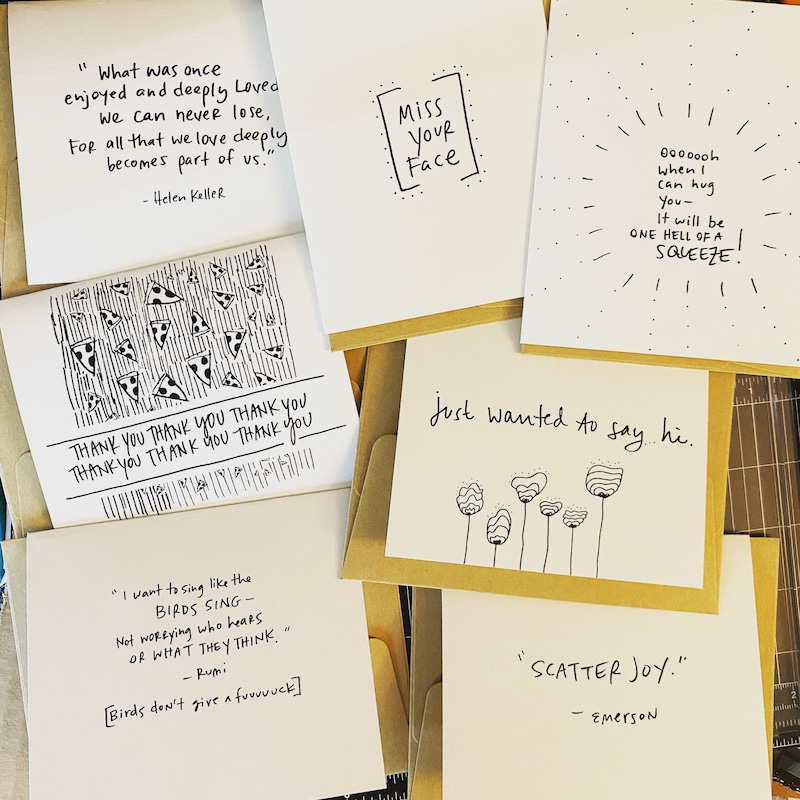 "What was once
enjoyed and deeply Loved
we can never lose,
For all that we love deeply
becomes part of us."
- Helen Keller
Miss
your
Face
OOOOOoh
when I
can hug
you-
It will be
ONE HELL OF A
SQUEEZE!
THANK YOU THANK YOU THANK YOU
THANK YOU THANK YOU THANK YOU
just wanted to say... hi.
"I want to sing like the
BIRDS SING-
Not worrying who hears
OR WHAT THEY THINK."
- Rumi
[Birds don't give a fuuuuuck]
"SCATTER JOY."
- Emerson
1
2